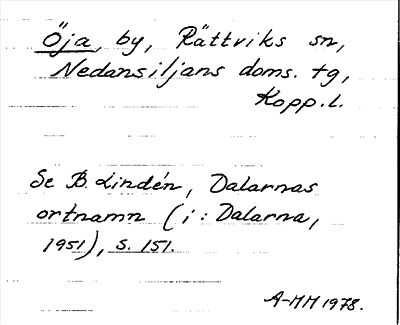 Öja, by, Rättviks sn,
Nedansiljans doms. tg,
Kopp. l.
Se B. Lindén, Dalarnas
ortnamn (i: Dalarna,
1951), s. 151.
A-MM 1978.